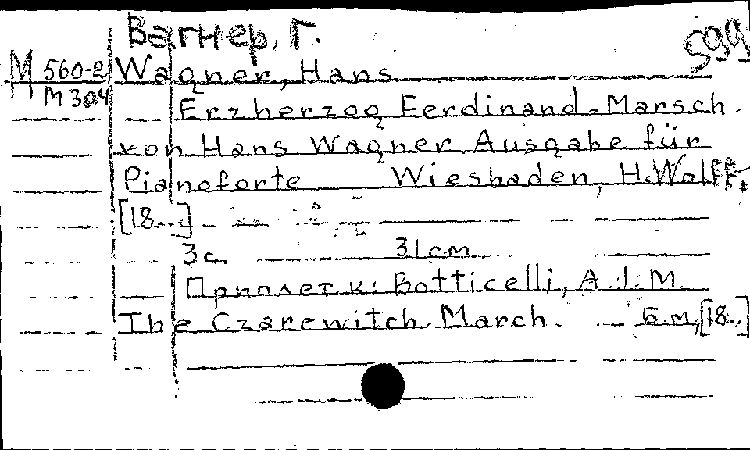 Вагнер, Г.
599
М 560-2 Wagner, Hans
М 304
Erzherzog Ferdinand-Marsch.
von Hans Wagner Ausgabe für
Pianoforte Wiesbaden, H. Wolff,
[18..]
3 с. 31 cm
Приплет к: Botticelli, A. J. M.
The Czarewitch March. Б.м., [18..]